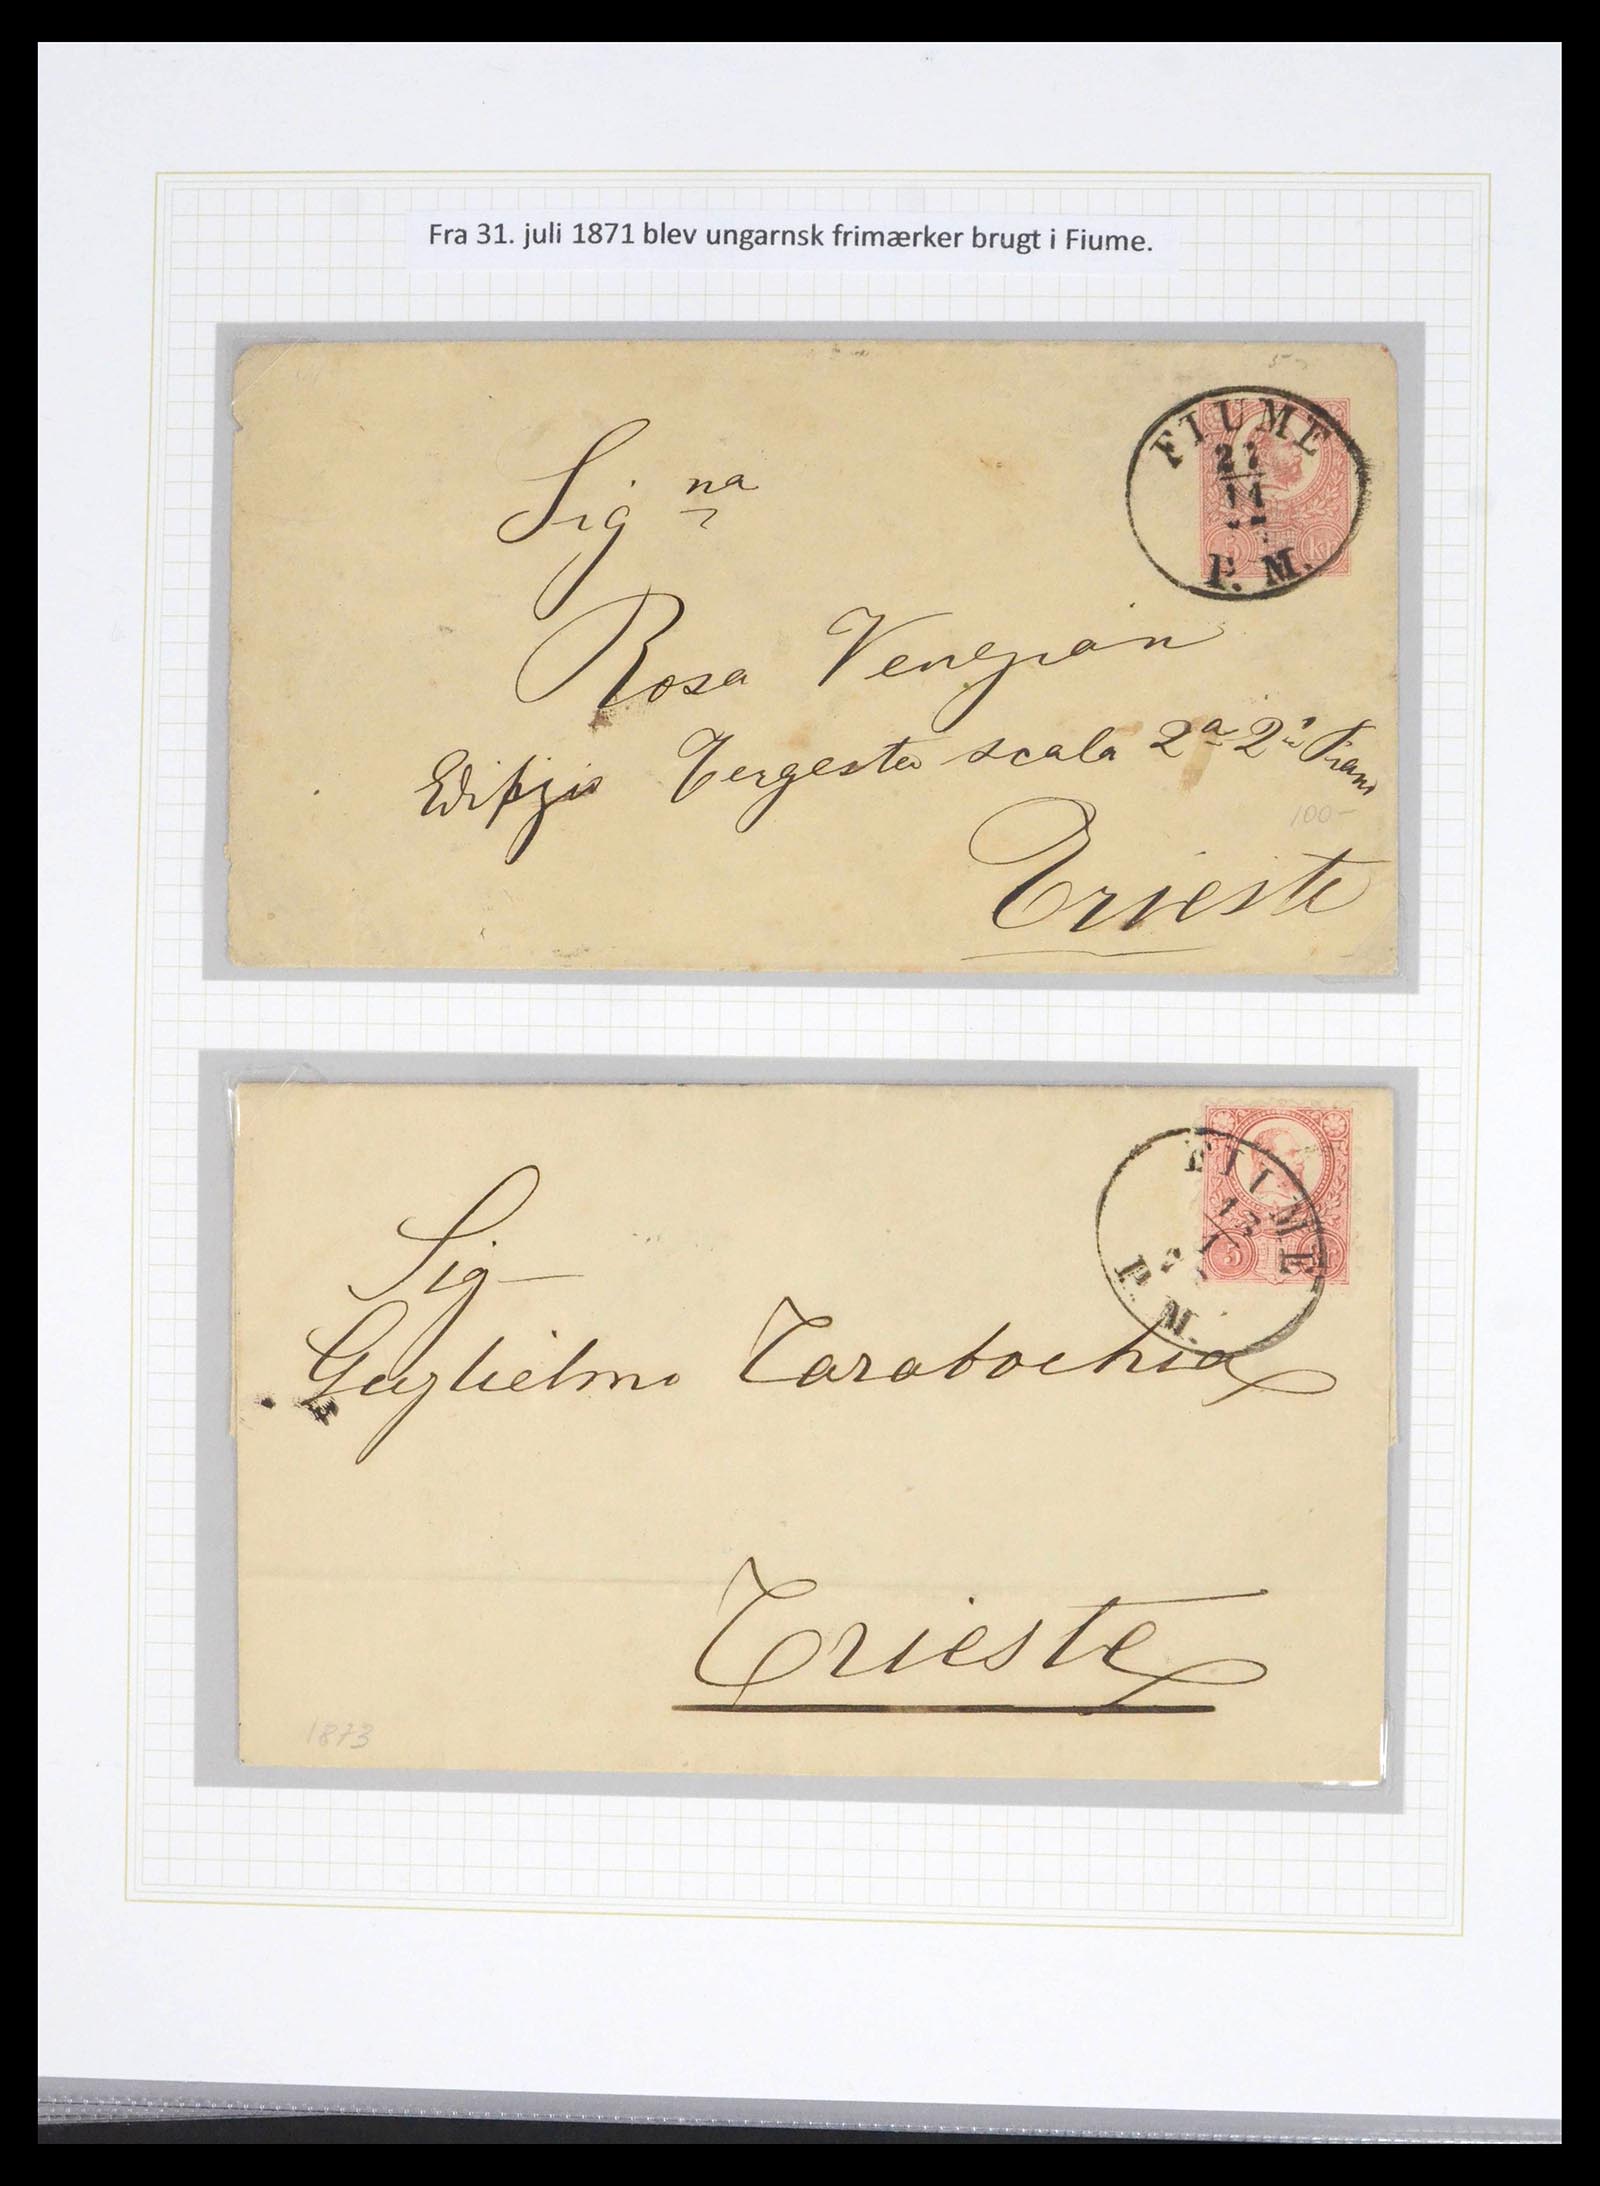 Fra 31. juli 1871 blev ungarnsk frimærker brugt i Fiume.
FIUME
P. M.
5 kr
Sig na
Rosa Venezian
Edifizio Tergesteo scala 2a 2o Piano
100-
Trieste
FIUME
P. M.
5
Sig
Guglielmo Tarabochia
Trieste
1873